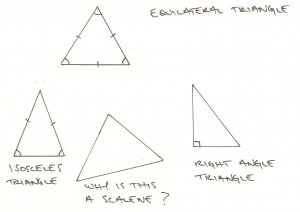 EQUILATERAL TRIANGLE
ISOSCELES
TRIANGLE
WHY IS THIS
A SCALENE?
RIGHT ANGLE
TRIANGLE